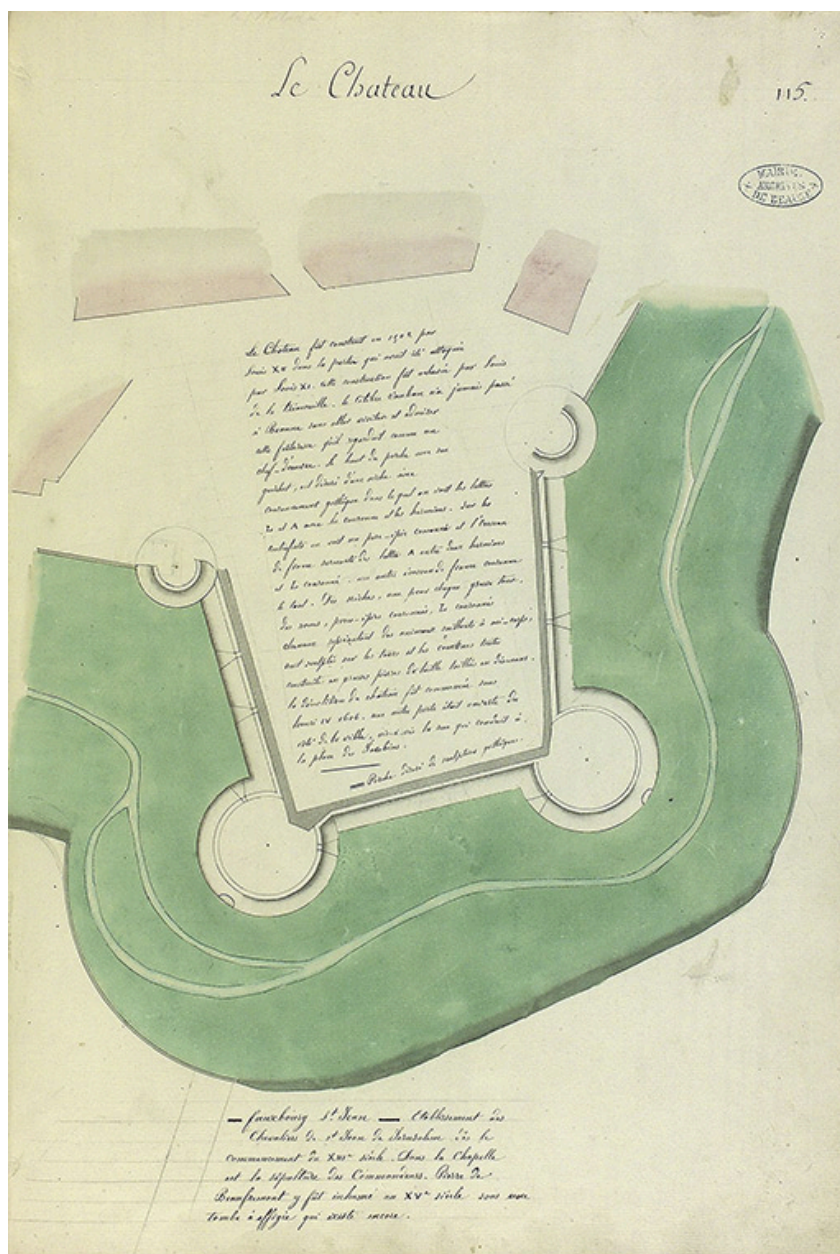 Le Chateau
115.
MAIRIE
ARCHIVES
DE BEAUNE
Le Chateau fut construit en 1502 par
Louis XII dans la partie qui avait été attaquée
par Louis XI. cette construction fut achevée par Louis
de la Trimouille. le célèbre Vauban n'a jamais passé
à Beaune sans aller visiter et admirer
cette forteresse qu'il regardait comme un
chef-d'œuvre. le haut du porche avec son
guichet, est décoré d'une niche avec
couronnement gothique dans lequel on voit les lettres
et A avec la couronne et les hermines. Sur les
contreforts on voit un porc-épic couronné et l'écusson
de france surmonté de lettre A entre deux hermines
et le couronné. un autre écusson de france couronne
le tout. Des niches, une pour chaque grosse tour,
des roses, porcs-épics couronnés, couronnés
chacune représentant des animaux saillants à mi-corps,
sont sculptés sur les tours et les courtines toutes
construites en grosses pierres de taille taillées en diamans.
la démolition du château fut commencée sous
henri IV 1602. une autre porte était ouverte du
côté de la ville, vis-à-vis la rue qui conduit à
la place des Jacobins.
Porche décoré de sculptures gothiques.
fauxbourg St. Jean — Etablissement des
Chevaliers de St Jean de Jerusalem dès le
commencement du siècle. Dans la Chapelle
est la sépulture des Commandeurs. Pierre de
Beaufremont y fut inhumé au XVe siècle sous une
tombe à effigie qui existe encore.